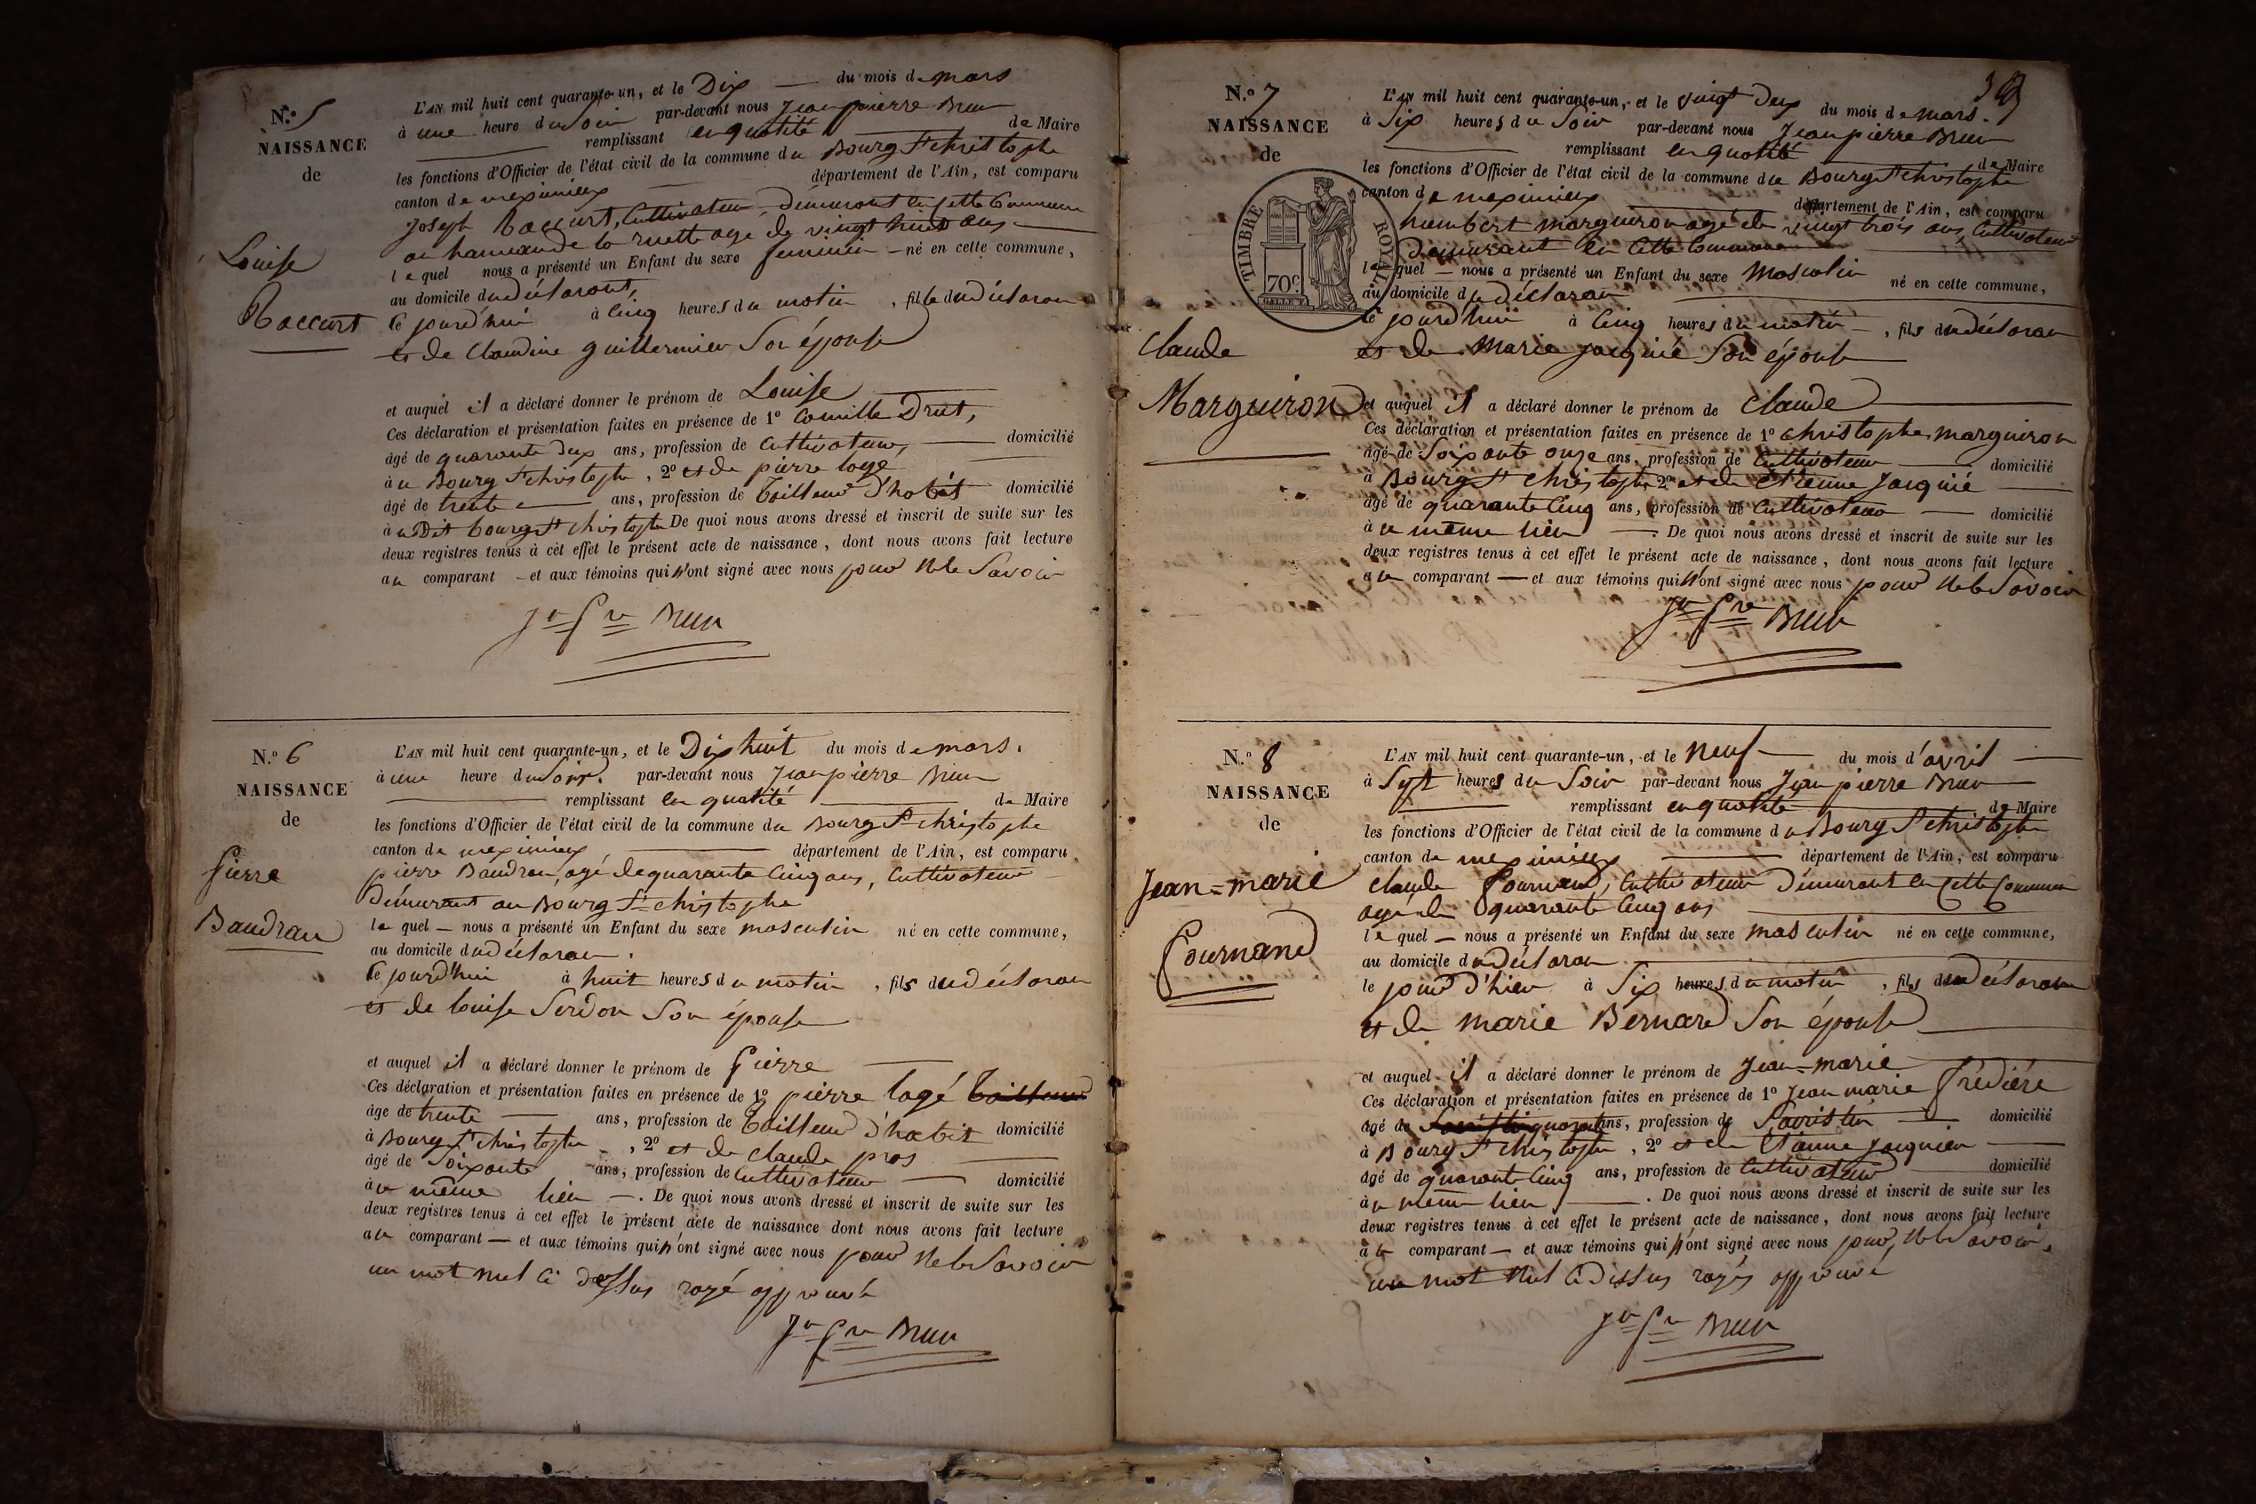 N.o 5
NAISSANCE
de
Louise
Raccurt
L'AN mil huit cent quarante-un, et le Dix du mois de mars
à une heure du Soir par-devant nous Jean pierre Brun
remplissant en qualité de Maire
les fonctions d'Officier de l'état civil de la commune du Bourg St christophe
canton de meximieux département de l'Ain, est comparu
Joseph Raccurt, Cultivateur, demeurant en cette Commune
au hameau de la ruette age de vingt huit ans
le quel nous a présenté un Enfant du sexe feminin né en cette commune,
au domicile du déclarant,
Ce jourd'hui à Cinq heures du matin, fille du déclaran
et de Claudine guillermier Son épouse
et auquel il a déclaré donner le prénom de Louise
Ces déclaration et présentation faites en présence de 1o Camille Drut,
âgé de quarante deux ans, profession de Cultivateur, domicilié
à u Bourg St christophe, 2o et de pierre logé
âgé de trente ans, profession de tailleur d'habit domicilié
à u Dit bourg St christophe De quoi nous avons dressé et inscrit de suite sur les
deux registres tenus à cet effet le présent acte de naissance, dont nous avons fait lecture
au comparant et aux témoins qui n'ont signé avec nous pour ne le Savoir
Jn Pre Brun
N.o 6
NAISSANCE
de
Pierre
Baudran
L'AN mil huit cent quarante-un, et le Dix huit du mois de mars.
à une heure du Soir. par-devant nous Jean pierre Brun
remplissant en qualité de Maire
les fonctions d'Officier de l'état civil de la commune du Bourg St christophe
canton de meximieux département de l'Ain, est comparu
pierre Baudran, agé de quarante Cinq ans, Cultivateur
Demeurant au Bourg St christophe
le quel nous a présenté un Enfant du sexe masculin né en cette commune,
au domicile du déclaran.
Ce jourd'hui à huit heures du matin, fils du déclaran
et de louise Serdon Son épouse
et auquel il a déclaré donner le prénom de Pierre
Ces déclaration et présentation faites en présence de 1o pierre logé tailleur
âge de trente ans, profession de tailleur d'habit domicilié
à Bourg St christophe, 2o et de claude pros
âgé de Soixante ans, profession de Cultivateur domicilié
à u même lieu. De quoi nous avons dressé et inscrit de suite sur les
deux registres tenus à cet effet le présent acte de naissance dont nous avons fait lecture
au comparant et aux témoins qui n'ont signé avec nous pour ne le Savoir
un mot nul Ci dessus rayé approuvé
Jn Pre Brun
N.o 7
NAISSANCE
de
TIMBRE ROYAL
70c
claude
Marguiron
L'AN mil huit cent quarante-un, et le vingt Deux du mois de mars.
à Six heures du Soir par-devant nous Jean pierre Brun
remplissant en qualité de Maire
les fonctions d'Officier de l'état civil de la commune du Bourg St christophe
canton de meximieux département de l'Ain, est comparu
humbert marguiron agé de vingt trois ans, Cultivateur
demeurant en Cette Commune
le quel nous a présenté un Enfant du sexe Masculin né en cette commune,
au domicile du déclaran
Ce jourd'hui à Cinq heures du matin, fils du déclaran
et de Marie jacquié Son épouse
et auquel il a déclaré donner le prénom de claude
Ces déclaration et présentation faites en présence de 1o christophe marguiron
âgé de Soixante onze ans, profession de Cultivateur domicilié
à Bourg St christophe 2o et de Etienne jacquié
âgé de quarante Cinq ans, profession de Cultivateur domicilié
à u même lieu. De quoi nous avons dressé et inscrit de suite sur les
deux registres tenus à cet effet le présent acte de naissance, dont nous avons fait lecture
au comparant et aux témoins qui n'ont signé avec nous pour ne le Savoir
Jn Pre Brun
N.o 8
NAISSANCE
de
Jean-marie
Pournand
L'AN mil huit cent quarante-un, et le neuf du mois d'avril
à Sept heures du Soir par-devant nous Jean pierre Brun
remplissant en qualité de Maire
les fonctions d'Officier de l'état civil de la commune du Bourg St christophe
canton de meximieux département de l'Ain, est comparu
claude Pournand, Cultivateur Demeurant en Cette Commune
agé de quarante Cinq ans
le quel nous a présenté un Enfant du sexe masculin né en cette commune,
au domicile du déclaran
le jour d'hier à Six heures du matin, fils du déclaran
et de marie Bernard Son épouse
et auquel il a déclaré donner le prénom de Jean-marie
Ces déclaration et présentation faites en présence de 1o Jean marie frédiére
âgé de quarante ans, profession de Savristin domicilié
à Bourg St christophe, 2o et de Etienne jacquier
âgé de quarante Cinq ans, profession de Cultivateur domicilié
à u même lieu. De quoi nous avons dressé et inscrit de suite sur les
deux registres tenus à cet effet le présent acte de naissance, dont nous avons fait lecture
à u comparant et aux témoins qui n'ont signé avec nous pour ne le Savoir.
un mot nul Ci dessus rayés approuvé
Jn Pre Brun